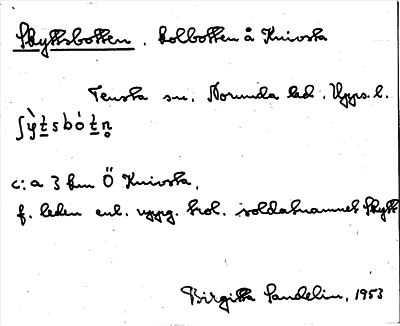 Skyttsbotten, kolbotten å Knivsta
Tensta sn. Norunda hd. Upps. l.
ʃỳtsbòtn̥
c:a 3 km Ö Knivsta,
f. leden enl. uppg. trol. soldatnamnet Skytt
Birgitta Sandelin, 1953